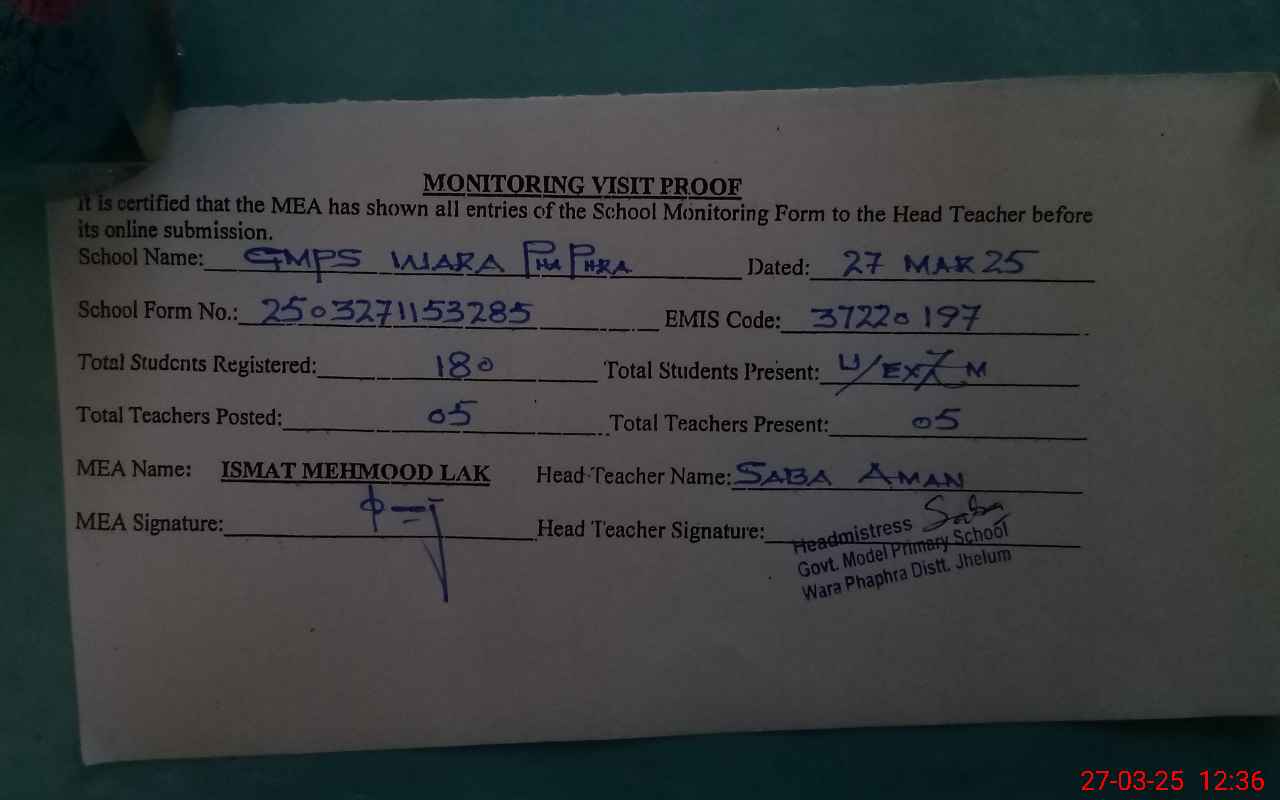 MONITORING VISIT PROOF
It is certified that the MEA has shown all entries of the School Monitoring Form to the Head Teacher before
its online submission.
School Name: GMPS WARA PHAPHRA Dated: 27 MAR 25
School Form No.: 2503271153285 EMIS Code: 37220197
Total Students Registered: 180 Total Students Present: U/EXM
Total Teachers Posted: 05 Total Teachers Present: 05
MEA Name: ISMAT MEHMOOD LAK Head Teacher Name: SABA AMAN
MEA Signature: Head Teacher Signature: Saba
Headmistress
Govt. Model Primary School
Wara Phaphra Distt. Jhelum
27-03-25 12:36